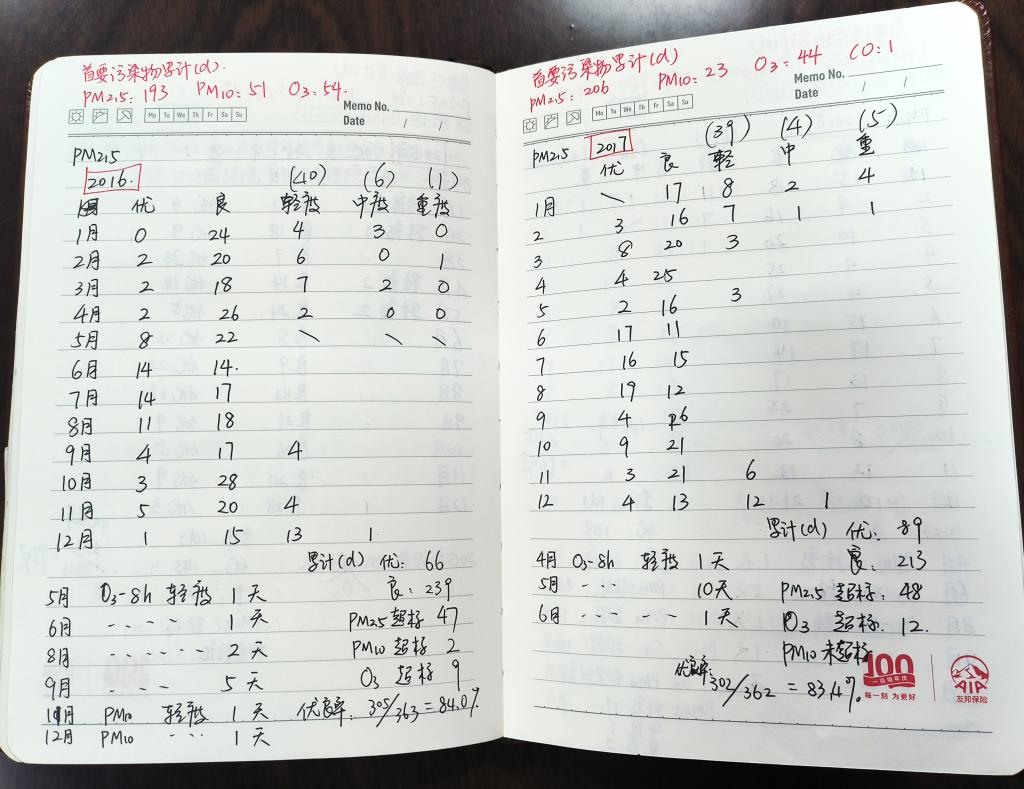 首要污染物累计(d).
PM2.5: 193 PM10: 51 O3: 54.
Memo No.
Mo Tu We Th Fr Sa Su
Date / /
PM2.5
2016. (40) (6) (1)
优 良 轻度 中度 重度
1月 0 24 4 3 0
2月 2 20 6 0 1
3月 2 18 7 2 0
4月 2 26 2 0 0
5月 8 22 \ \ \
6月 14 14.
7月 14 17
8月 11 18
9月 4 17 4
10月 3 28
11月 5 20 4
12月 1 15 13 1
累计(d) 优: 66
5月 O3-8h 轻度 1天 良: 239
6月 ---- 1天 PM2.5超标 47
8月 ----- 2天 PM10超标 2
9月 ---- 5天 O3超标 9
11月 PM10 轻度 1天 优良率: 305/363=84.0%
12月 PM10 -- 1天
首要污染物累计(d)
PM2.5: 206 PM10: 23 O3: 44 CO: 1
Memo No.
Mo Tu We Th Fr Sa Su
Date / /
PM2.5 2017 (39) (4) (5)
优 良 轻 中 重
1月 \ 17 8 2 4
2 3 16 7 1 1
3 8 20 3
4 4 25
5 2 16 3
6 17 11
7 16 15
8 19 12
9 4 26
10 9 21
11 3 21 6
12 4 13 12 1
累计(d) 优: 89
4月 O3-8h 轻度 1天 良: 213
5月 --- 10天 PM2.5超标: 48
6月 ---- 1天 O3超标. 12.
PM10未超标
优良率: 302/362=83.4%
100
一百周年庆
每一刻 为更好
AIA
友邦保险